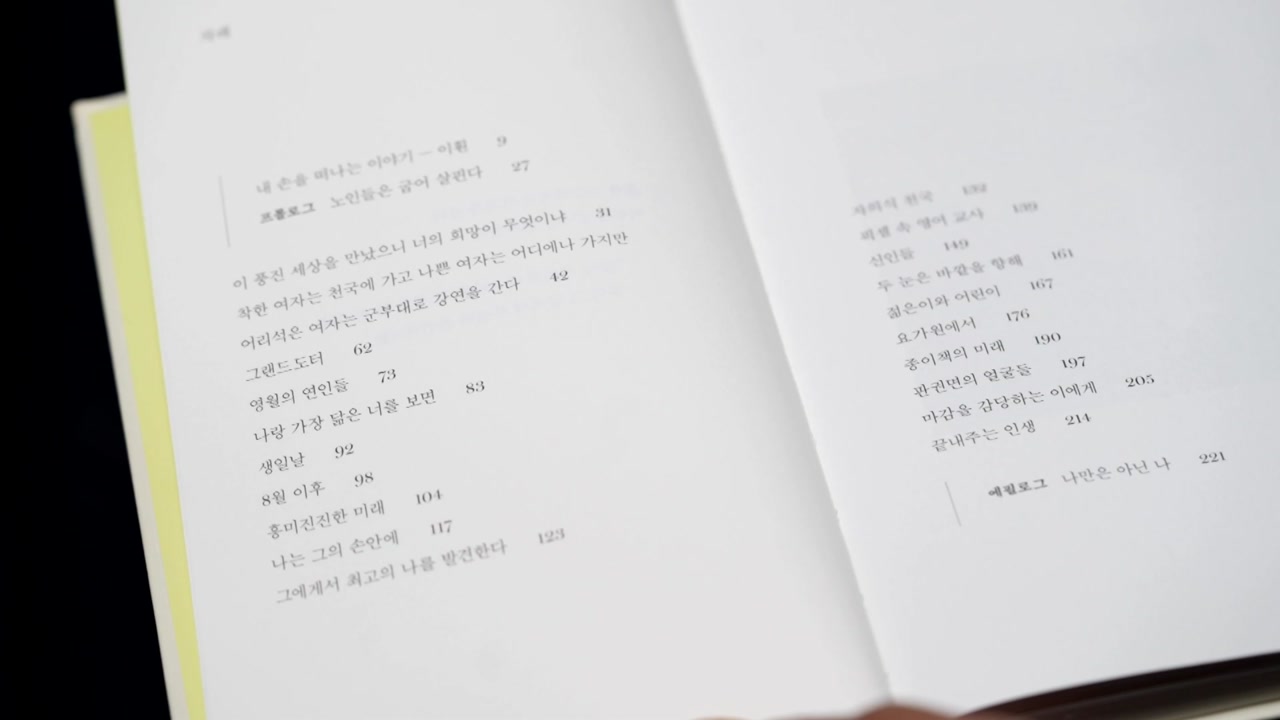 차례
내 손을 떠나는 이야기 – 이훤 9
프롤로그 노인들은 굽어 살핀다 27
이 풍진 세상을 만났으니 너의 희망이 무엇이냐 31
착한 여자는 천국에 가고 나쁜 여자는 어디에나 가지만
어리석은 여자는 군부대로 강연을 간다 42
그랜드도터 62
영월의 연인들 73
나랑 가장 닮은 너를 보면 83
생일날 92
8월 이후 98
흥미진진한 미래 104
나는 그의 손안에 117
그에게서 최고의 나를 발견한다 123
자의식 천국 132
퍼렐 속 영어 교사 139
신인들 149
두 눈은 바깥을 향해 161
젊은이와 어린이 167
요가원에서 176
종이책의 미래 190
판권면의 얼굴들 197
마감을 감당하는 이에게 205
끝내주는 인생 214
에필로그 나만은 아닌 나 221